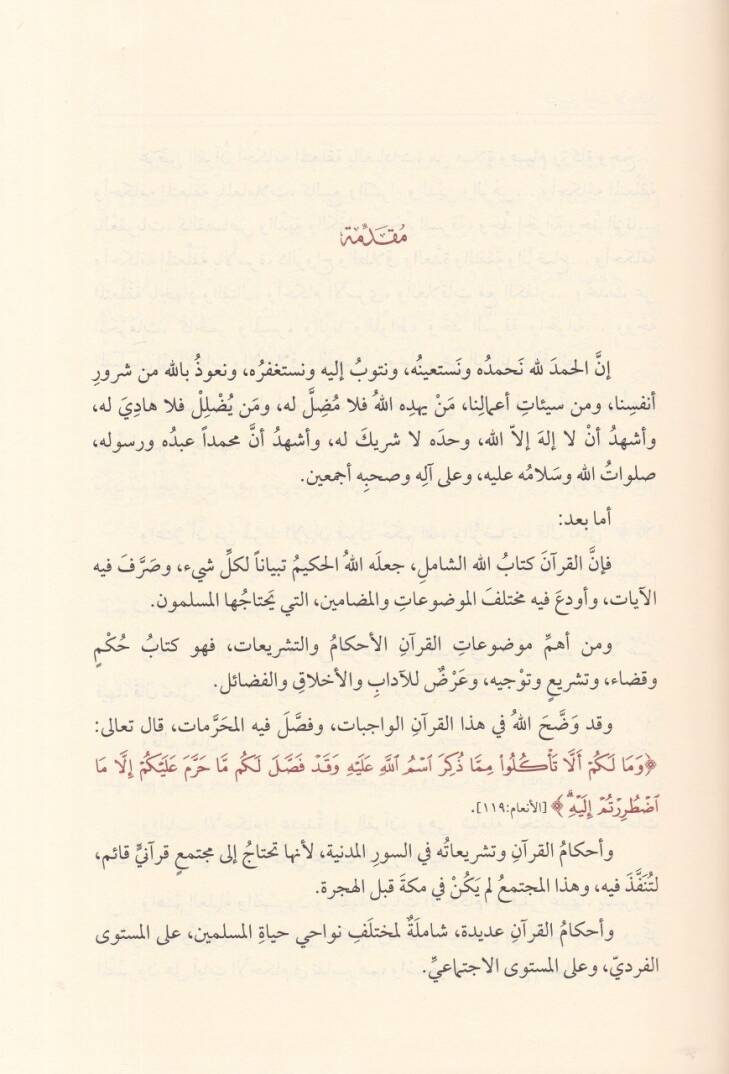 مُقَدِّمَة
إنَّ الحمدَ لله نَحمدُه ونَستعينُه، ونتوبُ إليه ونستغفرُه، ونعوذُ بالله من شرورِ
أنفسِنا، ومن سيئاتِ أعمالِنا، مَنْ يهدِه اللهُ فلا مُضِلَّ له، ومَن يُضْلِلْ فلا هاديَ له،
وأشهدُ أنْ لا إلهَ إلاّ الله، وحدَه لا شريكَ له، وأشهدُ أنَّ محمداً عبدُه ورسوله،
صلواتُ الله وسَلامُه عليه، وعلى آلِه وصحبِه أجمعين.
أما بعد:
فإنَّ القرآنَ كتابُ الله الشاملِ، جعلَه اللهُ الحكيمُ تبياناً لكلِّ شيء، وصَرَّفَ فيه
الآيات، وأودعَ فيه مختلفَ الموضوعاتِ والمضامين، التي يَحتاجُها المسلمون.
ومن أهمِّ موضوعاتِ القرآنِ الأحكامُ والتشريعات، فهو كتابُ حُكْمٍ
وقضاء، وتشريعٍ وتوْجيه، وعَرْضٌ للآدابِ والأخلاقِ والفضائل.
وقد وَضَّحَ اللهُ في هذا القرآنِ الواجبات، وفصَّلَ فيه المحَرَّمات، قال تعالى:
﴿وَمَا لَكُمْ أَلَّا تَأْكُلُوا۟ مِمَّا ذُكِرَ ٱسْمُ ٱللَّهِ عَلَيْهِ وَقَدْ فَصَّلَ لَكُم مَّا حَرَّمَ عَلَيْكُمْ إِلَّا مَا
ٱضْطُرِرْتُمْ إِلَيْهِ ۗ﴾ [الأنعام:١١٩].
وأحكامُ القرآنِ وتشريعاتُه في السورِ المدنية، لأنها تحتاجُ إلى مجتمعٍ قرآنيٍّ قائم،
لتُنَفَّذَ فيه، وهذا المجتمعُ لم يَكُنْ في مكةَ قبل الهجرة.
وأحكامُ القرآن عديدة، شاملَةٌ لمختلَفِ نواحي حياةِ المسلمين، على المستوى
الفرديّ، وعلى المستوى الاجتماعيِّ.